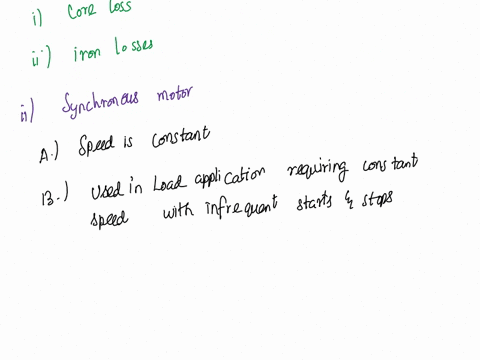 i) Core loss
ii) iron losses
ii) Synchronous motor
A.) Speed is constant
B.) Used in Load application requiring constant
speed with infrequant starts & stops